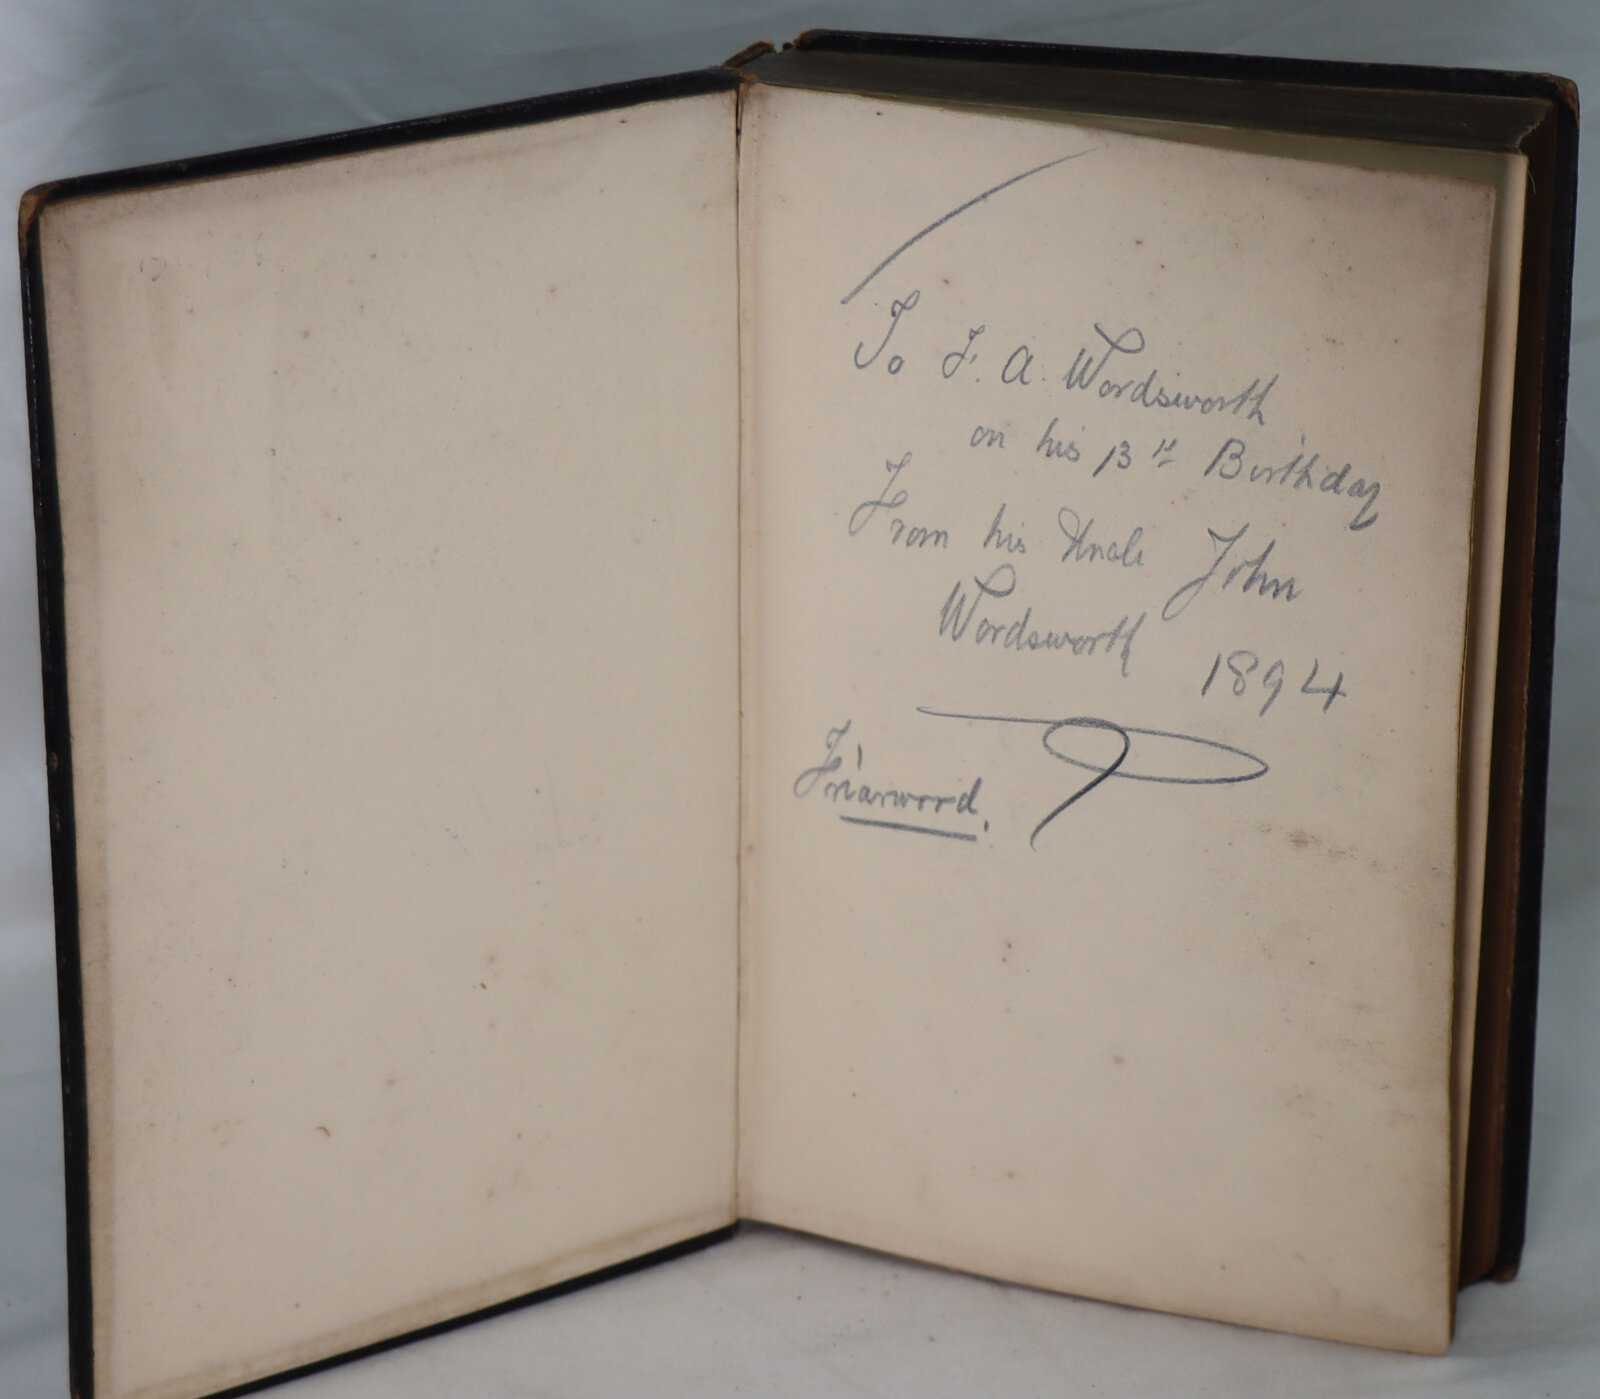 To F. A. Wordsworth
on his 13th Birthday
From his Uncle John
Wordsworth 1894
Friarwood.